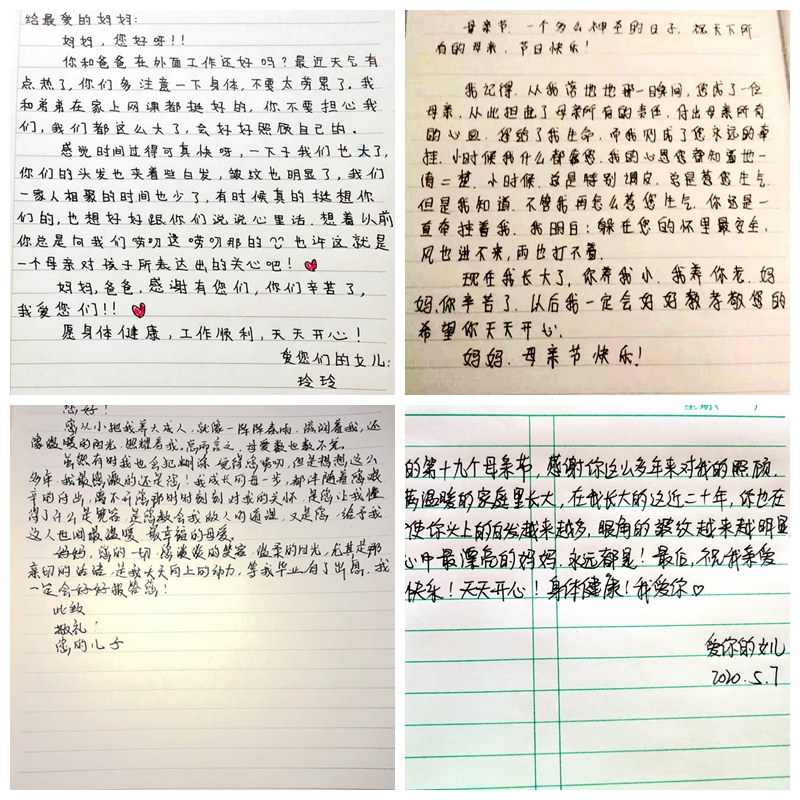 给最爱的妈妈:
妈妈，您好呀!!
你和爸爸在外面工作还好吗?最近天气有
点热了,你们多注意一下身体,不要太劳累了。我
和弟弟在家上网课都挺好的,你不要担心我
们,我们都这么大了,会好好照顾自己的。
感觉时间过得可真快呀,一下子我们也大了,
你们的头发也夹着些白发,皱纹也明显了,我们
一家人相聚的时间也少了,有时候真的挺想你
们的,也想好好跟你们说说心里话.想着以前
你总是向我们唠叨这唠叨那的 也许这就是
一个母亲对孩子所表达出的关心吧!
妈妈,爸爸,感谢有您们,你们辛苦了,
我爱您们!!
愿身体健康,工作顺利,天天开心!
爱您们的女儿:
玲玲
母亲节.一个多么神圣的日子.祝天下所
有的母亲、节日快乐!
我记得.从我落地地那一瞬间,您成了一位
母亲.从此担起了母亲所有的责任.付出母亲所有
的心血.您给了我生命.而我则成了您永远的牵
挂.小时候我什么都靠您.我的心思您都知道地一
清二楚.小时候.总是特别调皮.总是惹您生气
但是我知道.不管我再怎么惹您生气.你总是一
直牵挂着我.我明白:躲在您的怀里最安全,
风也进不来,雨也打不着.
现在我长大了,你养我小.我养你老.妈
妈,你辛苦了.以后我一定会好好教孝敬您的
希望你天天开心.
妈妈.母亲节快乐!
您好!
您从小把我养大成人,就像一阵阵春雨,滋润着我,还
像温暖的阳光,照耀着我.总而言之,母爱数也数不完。
虽然有时我也会犯糊涂,觉得您唠叨,但是想想这么
多年,我最感激的还是您!我成长的每一步,都伴随着您艰
辛的付出,离不开您那时时刻刻对我的关怀.是您让我懂
得了什么是宽容,是您教会我做人的道理,又是您,给予我
这人世间最温暖、最幸福的母爱。
妈妈,您的一切,您淡淡的笑容,温柔的目光,尤其是那
亲切的话语,是我天天向上的动力,等我毕业有了出息,我
一定会好好报答您!
此致
敬礼!
您的儿子
星期( )
的第十九个母亲节,感谢你这么多年来对我的照顾,
温暖的家庭里长大,在我长大的这近二十年,你也在
使你头上的白发越来越多,眼角的皱纹越来越明显
心中最漂亮的妈妈.永远都是!最后,祝我亲爱
快乐!天天开心!身体健康!我爱你♡
爱你的女儿
2020.5.7